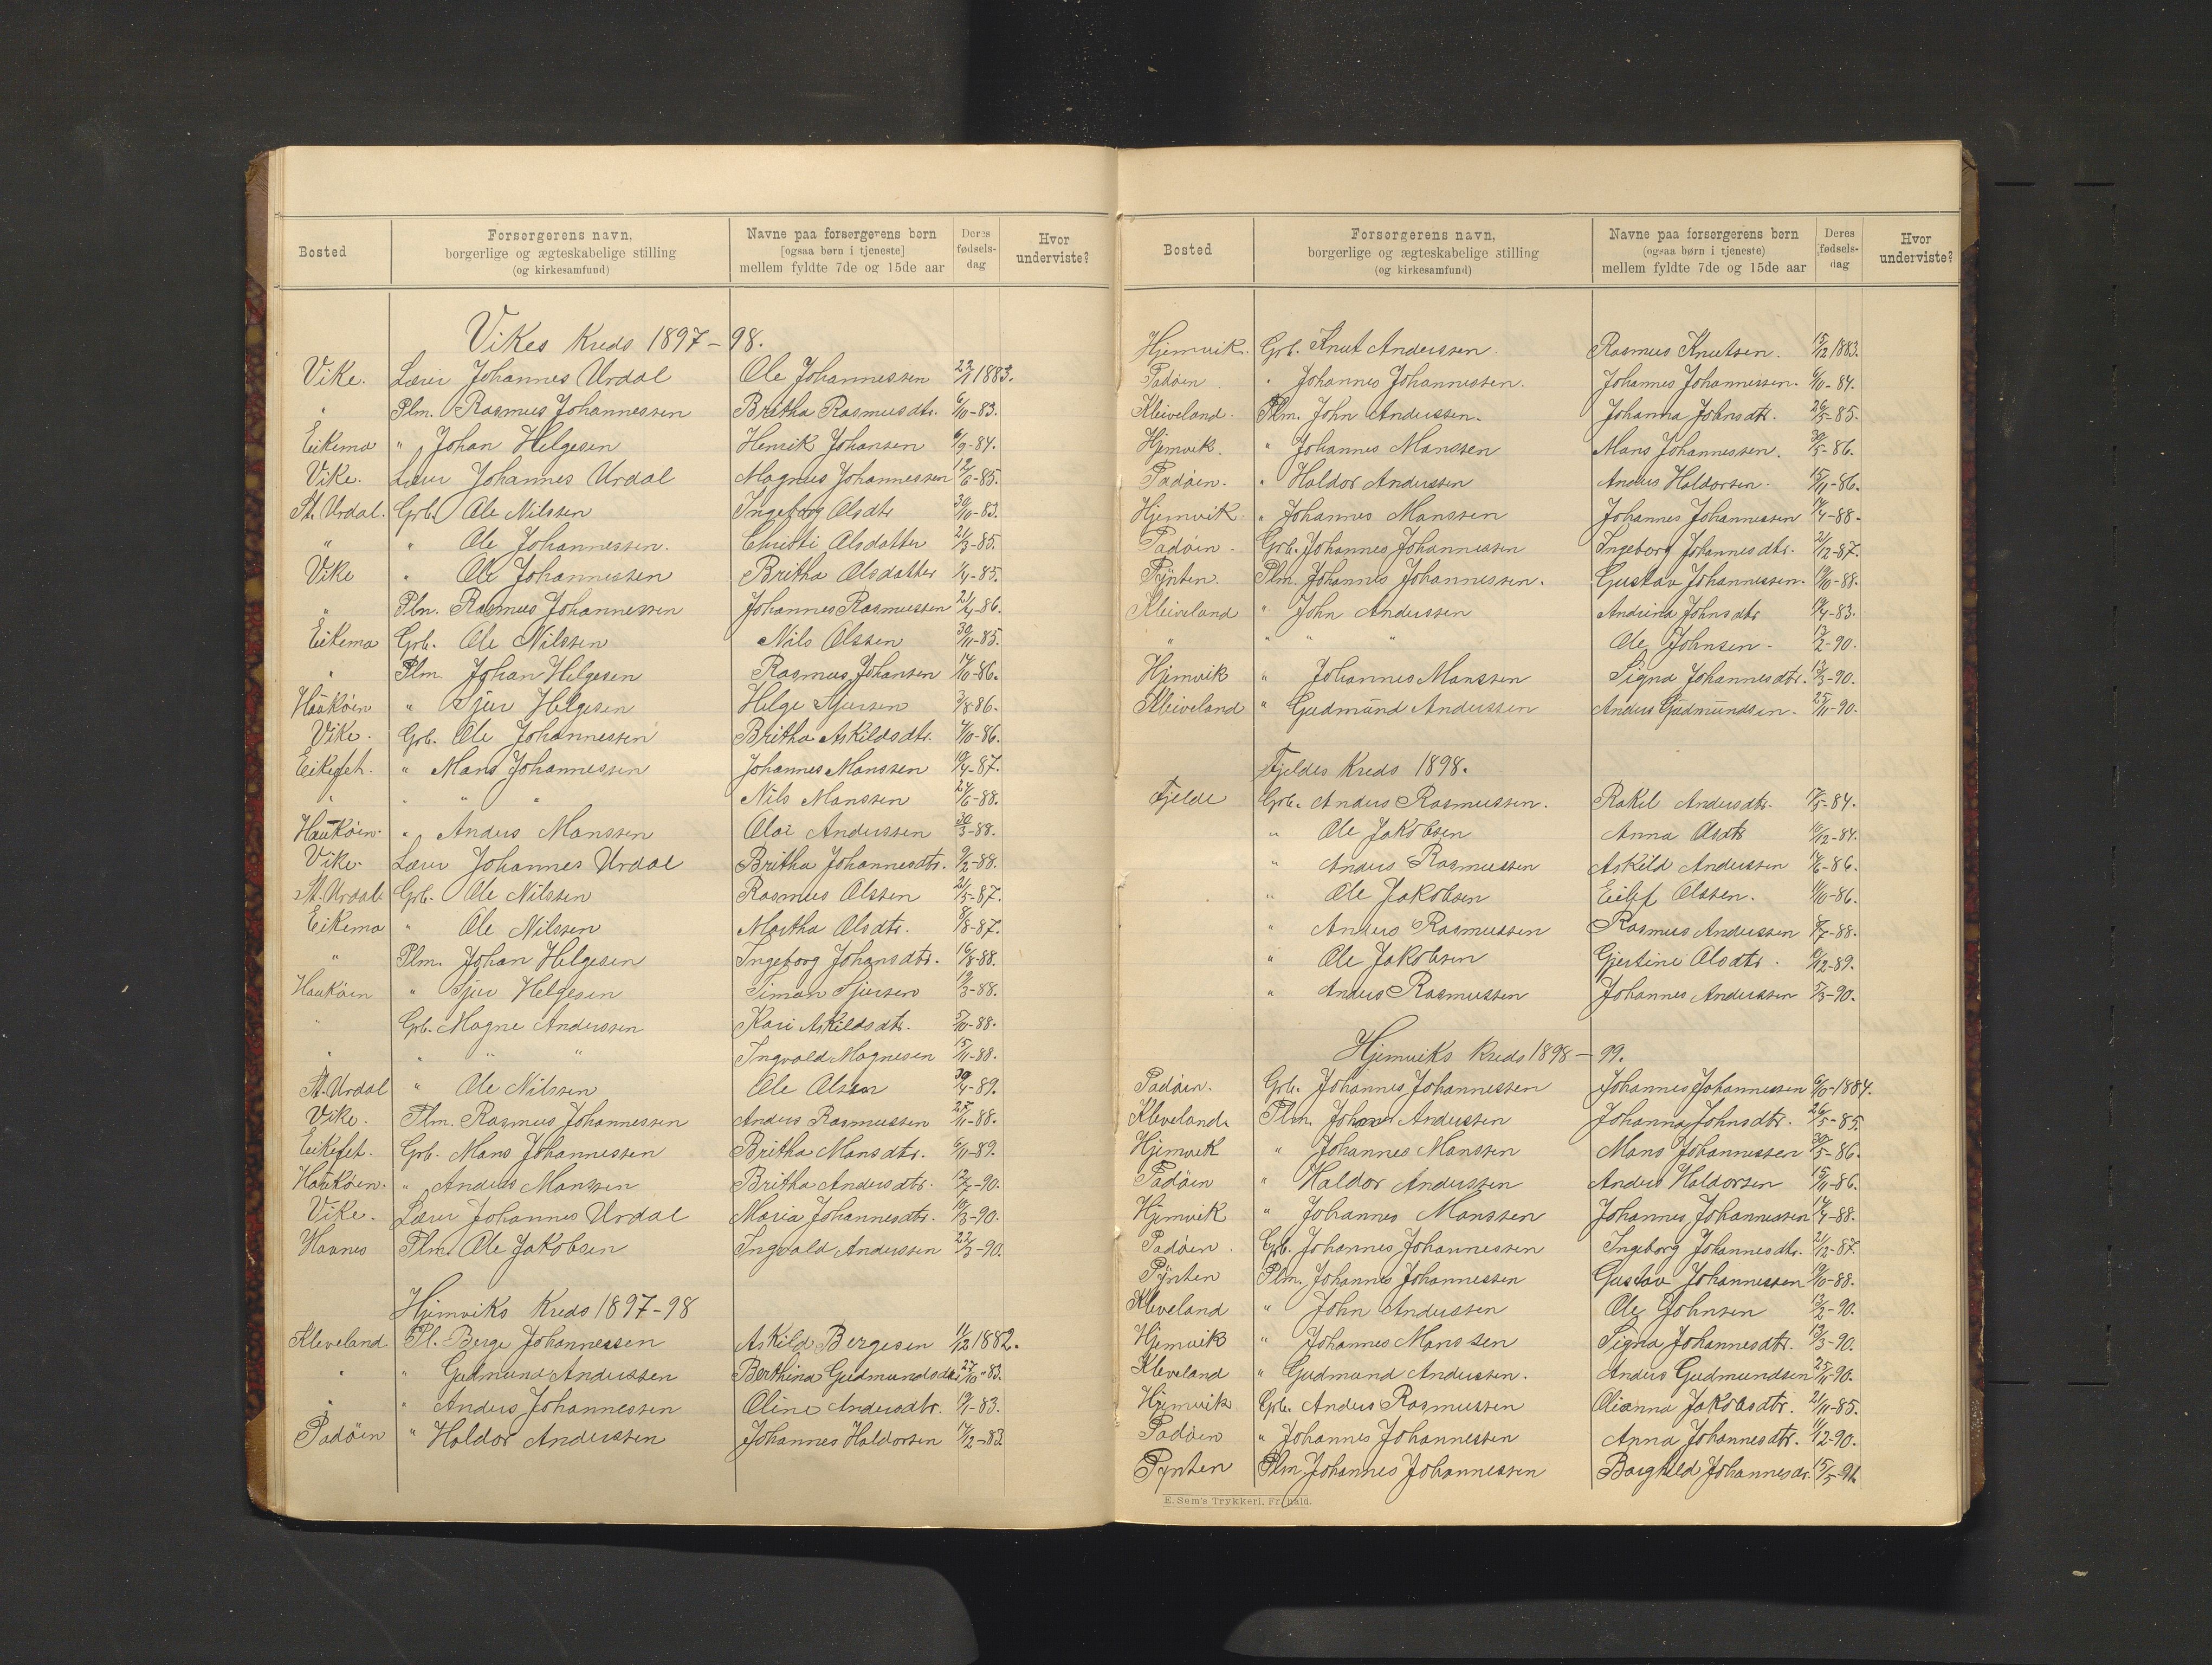 Bosted
Forsørgerens navn,
borgerlige og ægteskabelige stilling
(og kirkesamfund)
Navne paa forsørgerens børn
[ogsaa børn i tjeneste]
mellem fyldte 7de og 15de aar
Deres fødsels-dag
Hvor underviste?
Vikes Kreds 1897-98.
Vike. Lærer Johannes Urdal Ole Johannessen 22/1 1883.
" Plm. Rasmus Johannessen Britha Rasmusdtr. 6/10-83.
Eikemo " Johan Helgesen Henrik Johansen 6/9-84.
Vike. Lærer Johannes Urdal Magnus Johannessen 12/6-85.
St. Urdal. Grb. Ole Nilssen Ingeborg Olsdtr 30/10-83.
" " Ole Johannessen. Christi Olsdatter 21/3-85.
Vike " Ole Johannessen Britha Olsdatter 1/4-85.
" Plm. Rasmus Johannessen Johannes Rasmussen 21/4-86.
Eikemo Grb. Ole Nilssen Nils Olssen 30/11-85.
" Plm. Johan Helgesen Rasmus Johansen 17/10-86.
Haukøen " Sjur Helgesen Helge Sjursen 3/8 86.
Vike. Grb. Ole Johannessen Britha Askildsdtr. 4/10-86.
Eikefet. " Mans Johannessen Johannes Manssen 19/4-87.
" " " " Nils Manssen 24/6-88.
Haukøen. " Anders Manssen Olai Anderssen 30/3-88.
Vike. Lærer Johannes Urdal Britha Johannesdtr. 9/2-88.
St. Urdal Grb. Ole Nilssen Rasmus Olssen 21/5-87.
Eikemo " Ole Nilssen Martha Olsdtr. 8/8-87.
" Plm. Johan Helgesen Ingeborg Johansdtr. 16/8-88.
Haukøen " Sjur Helgesen Simon Sjursen 19/3-88.
" Grb. Magne Anderssen Kari Askildsdtr. 5/10-88.
" " " " Ingvald Magnesen 15/11-88.
St. Urdal " Ole Nilssen Ole Olsen 30/4-89.
Vike. Plm. Rasmus Johannessen Anders Rasmussen 27/11-88.
Eikefet. Grb. Mans Johannessen Britha Mansdtr. 6/11-89.
Haukøen. " Anders Manssen Britha Andersdtr. 12/7-90.
Vike. Lærer Johannes Urdal Maria Johannesdtr. 10/3-90.
Havnes Plm. Ole Jakobsen Ingvald Anderssen 22/3-90.
Hjemviks Kreds 1897-98
Kleveland Pl. Berge Johannessen Askild Bergesen 11/12 1882.
" " Gudmund Anderssen Berthina Gudmundsdtr 27/10"83.
" " Anders Johannessen Oline Andersdtr. 19/1-83.
Padøen " Haldor Anderssen Johannes Haldorsen 17/12-83
Bosted
Forsørgerens navn,
borgerlige og ægteskabelige stilling
(og kirkesamfund)
Navne paa forsørgerens børn
(ogsaa børn i tjeneste)
mellem fyldte 7de og 15de aar
Deres fødsels-dag
Hvor underviste?
Hjemvik. Grb. Knut Anderssen. Rasmus Knutsen. 15/12 1883.
Padøen. " Johannes Johannessen. Johannes Johannessen. 6/10-84.
Kleiveland. Plm. John Anderssen. Johanna Johnsdtr. 26/5-85.
Hjemvik. " Johannes Manssen Mans Johannessen. 30/5-86.
Padøen. " Haldor Anderssen Anders Haldorsen. 15/11-86.
Hjemvik " Johannes Manssen Johannes Johannessen 17/4-88.
Padøen. Grb. Johannes Johannessen Ingeborg Johannesdtr. 21/12-87.
Pynten. Plm. Johannes Johannessen. Gustav Johannessen. 19/10-88.
Kleiveland " John Anderssen Andrina Johnsdtr 19/4-83.
" " " " Ole Johnsen. 13/2-90.
Hjemvik " Johannes Manssen Signa Johannesdtr. 13/3-90.
Kleiveland " Gudmund Anderssen Anders Gudmundsen. 25/11-90.
Fjeldes Kreds 1898.
Fjelde Grb. Anders Rasmussen. Rakel Andersdtr. 17/5-84.
" Ole Jakobsen Anna Olsdtr 10/12-84.
" Anders Rasmussen Askild Anderssen 14/6-86.
" Ole Jakobsen Eilif Olssen. 11/10-86.
" Anders Rasmussen Rasmus Anderssen 8/7-88.
" Ole Jakobsen Gjertine Olsdtr. 10/12-89.
" Anders Rasmussen Johannes Anderssen 5/3-90.
Hjemviks Kreds 1898-99.
Padøen. Grb. Johannes Johannessen Johannes Johannessen 6/10-1884.
Kleveland Plm. John Anderssen Johanna Johnsdtr. 26/5-85.
Hjemvik " Johannes Manssen Mans Johannessen 30/5-86.
Padøen " Haldor Anderssen Anders Haldorsen 15/11-86.
Hjemvik " Johannes Manssen Johannes Johannessen 17/4-88.
Padøen. Grb. Johannes Johannessen Ingeborg Johannesdtr. 21/12-87.
Pynten Plm. Johannes Johannessen Gustav Johannessen 19/10-88.
Kleveland " John Anderssen Ole Johnsen 13/2-90.
Hjemvik " Johannes Manssen Signa Johannesdtr. 13/3-90.
Kleveland " Gudmund Anderssen. Anders Gudmundsen 25/11-90.
Hjemvik Grb. Anders Rasmussen Olianna Jakobsdtr. 21/11-85.
Padøen " Johannes Johannessen Anna Johannesdtr. 11/12-90.
Pynten Plm Johannes Johannessen Borghild Johannesdr. 15/5-91.
E. Sem's Trykkeri, Fr.hald.